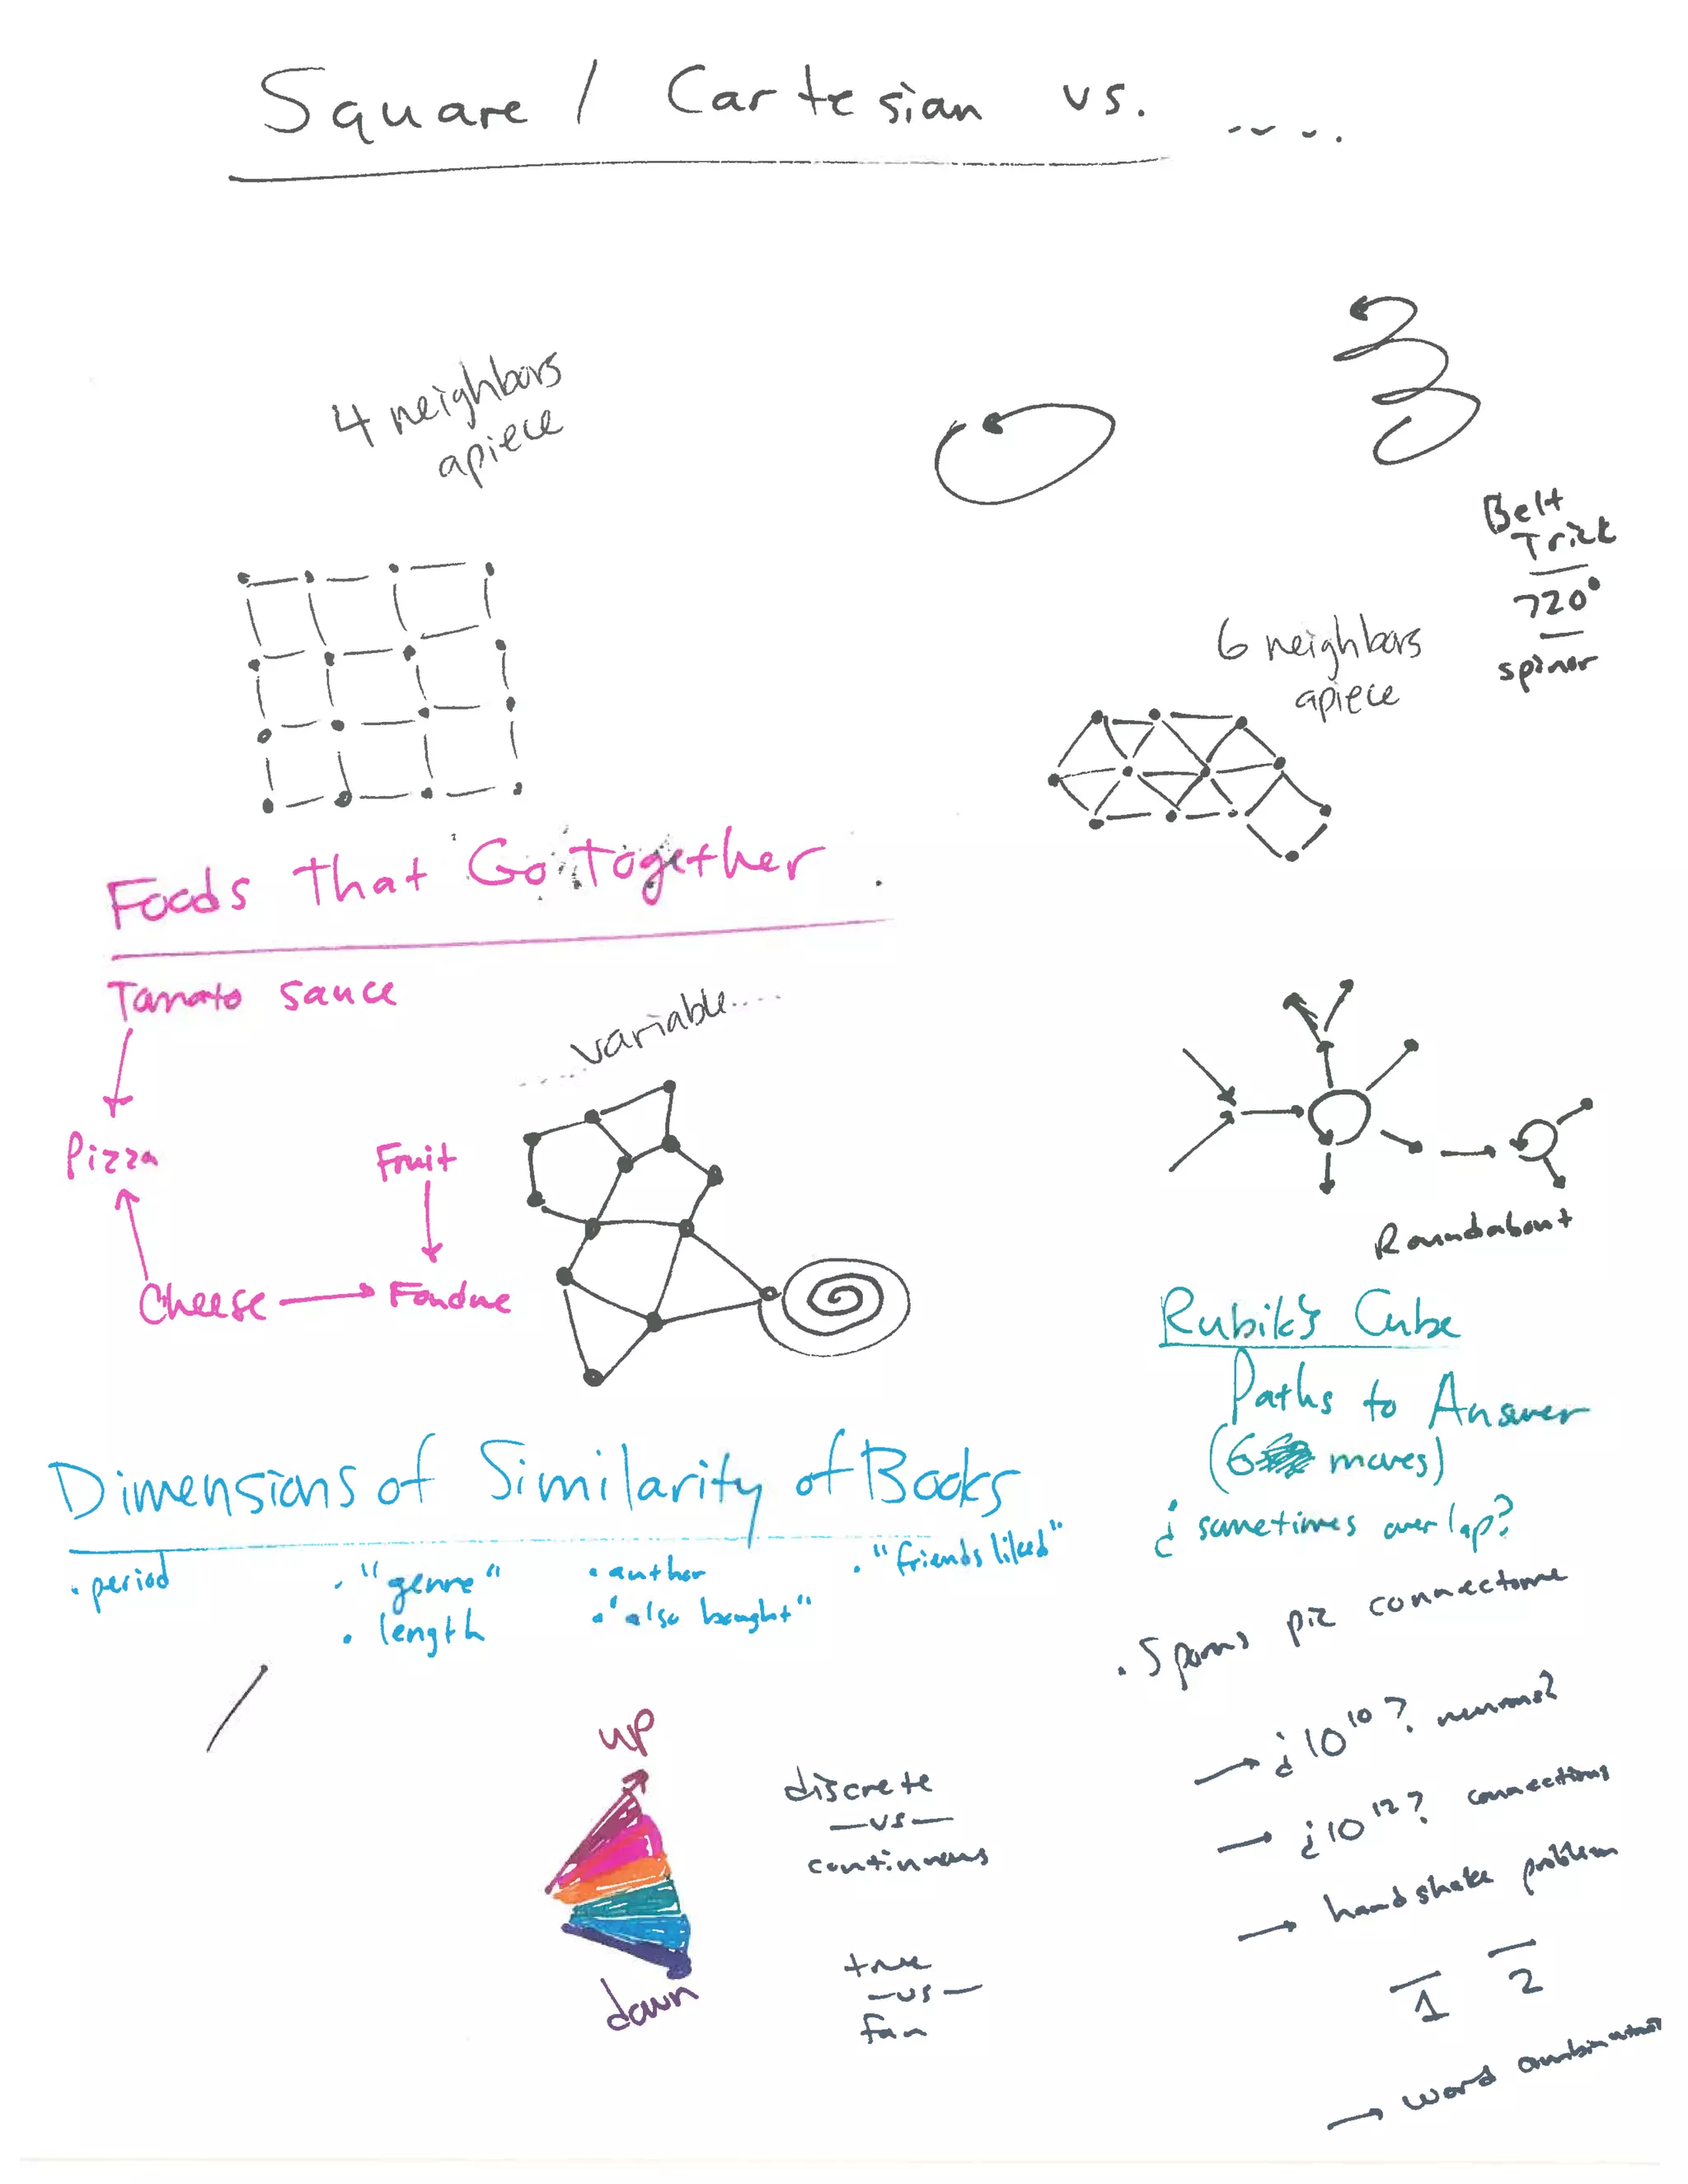 Square / Cartesian vs. ....
4 neighbors
apiece
Belt
Trick
720°
spinor
6 neighbors
apiece
Foods That Go Together
Tomato sauce
Pizza
Fruit
Cheese
Fondue
.....variable.....
Roundabout
Rubik's Cube
Paths to Answer
(6 moves)
¿ sometimes overlap?
Dimensions of Similarity of Books
• period
• "genre"
• length
• author
• "also bought"
• "friends liked"
• Sporns pic connectome
→ ¿10¹⁰? neurons?
→ ¿10¹²? connections
→ handshake problem
1 2
→ word
up
down
discrete
—vs—
continuous
true
—vs—